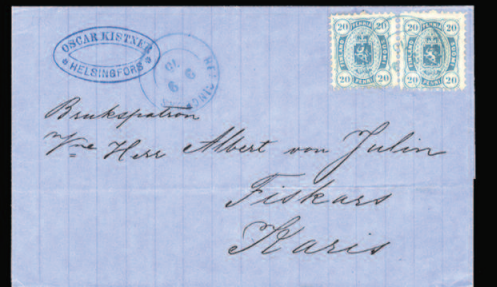 OSCAR KISTNER
HELSINGFORS
20 20 20 20
20 20 20 20
Brukspatron
Herr Albert von Julin
Fiskars
Karis